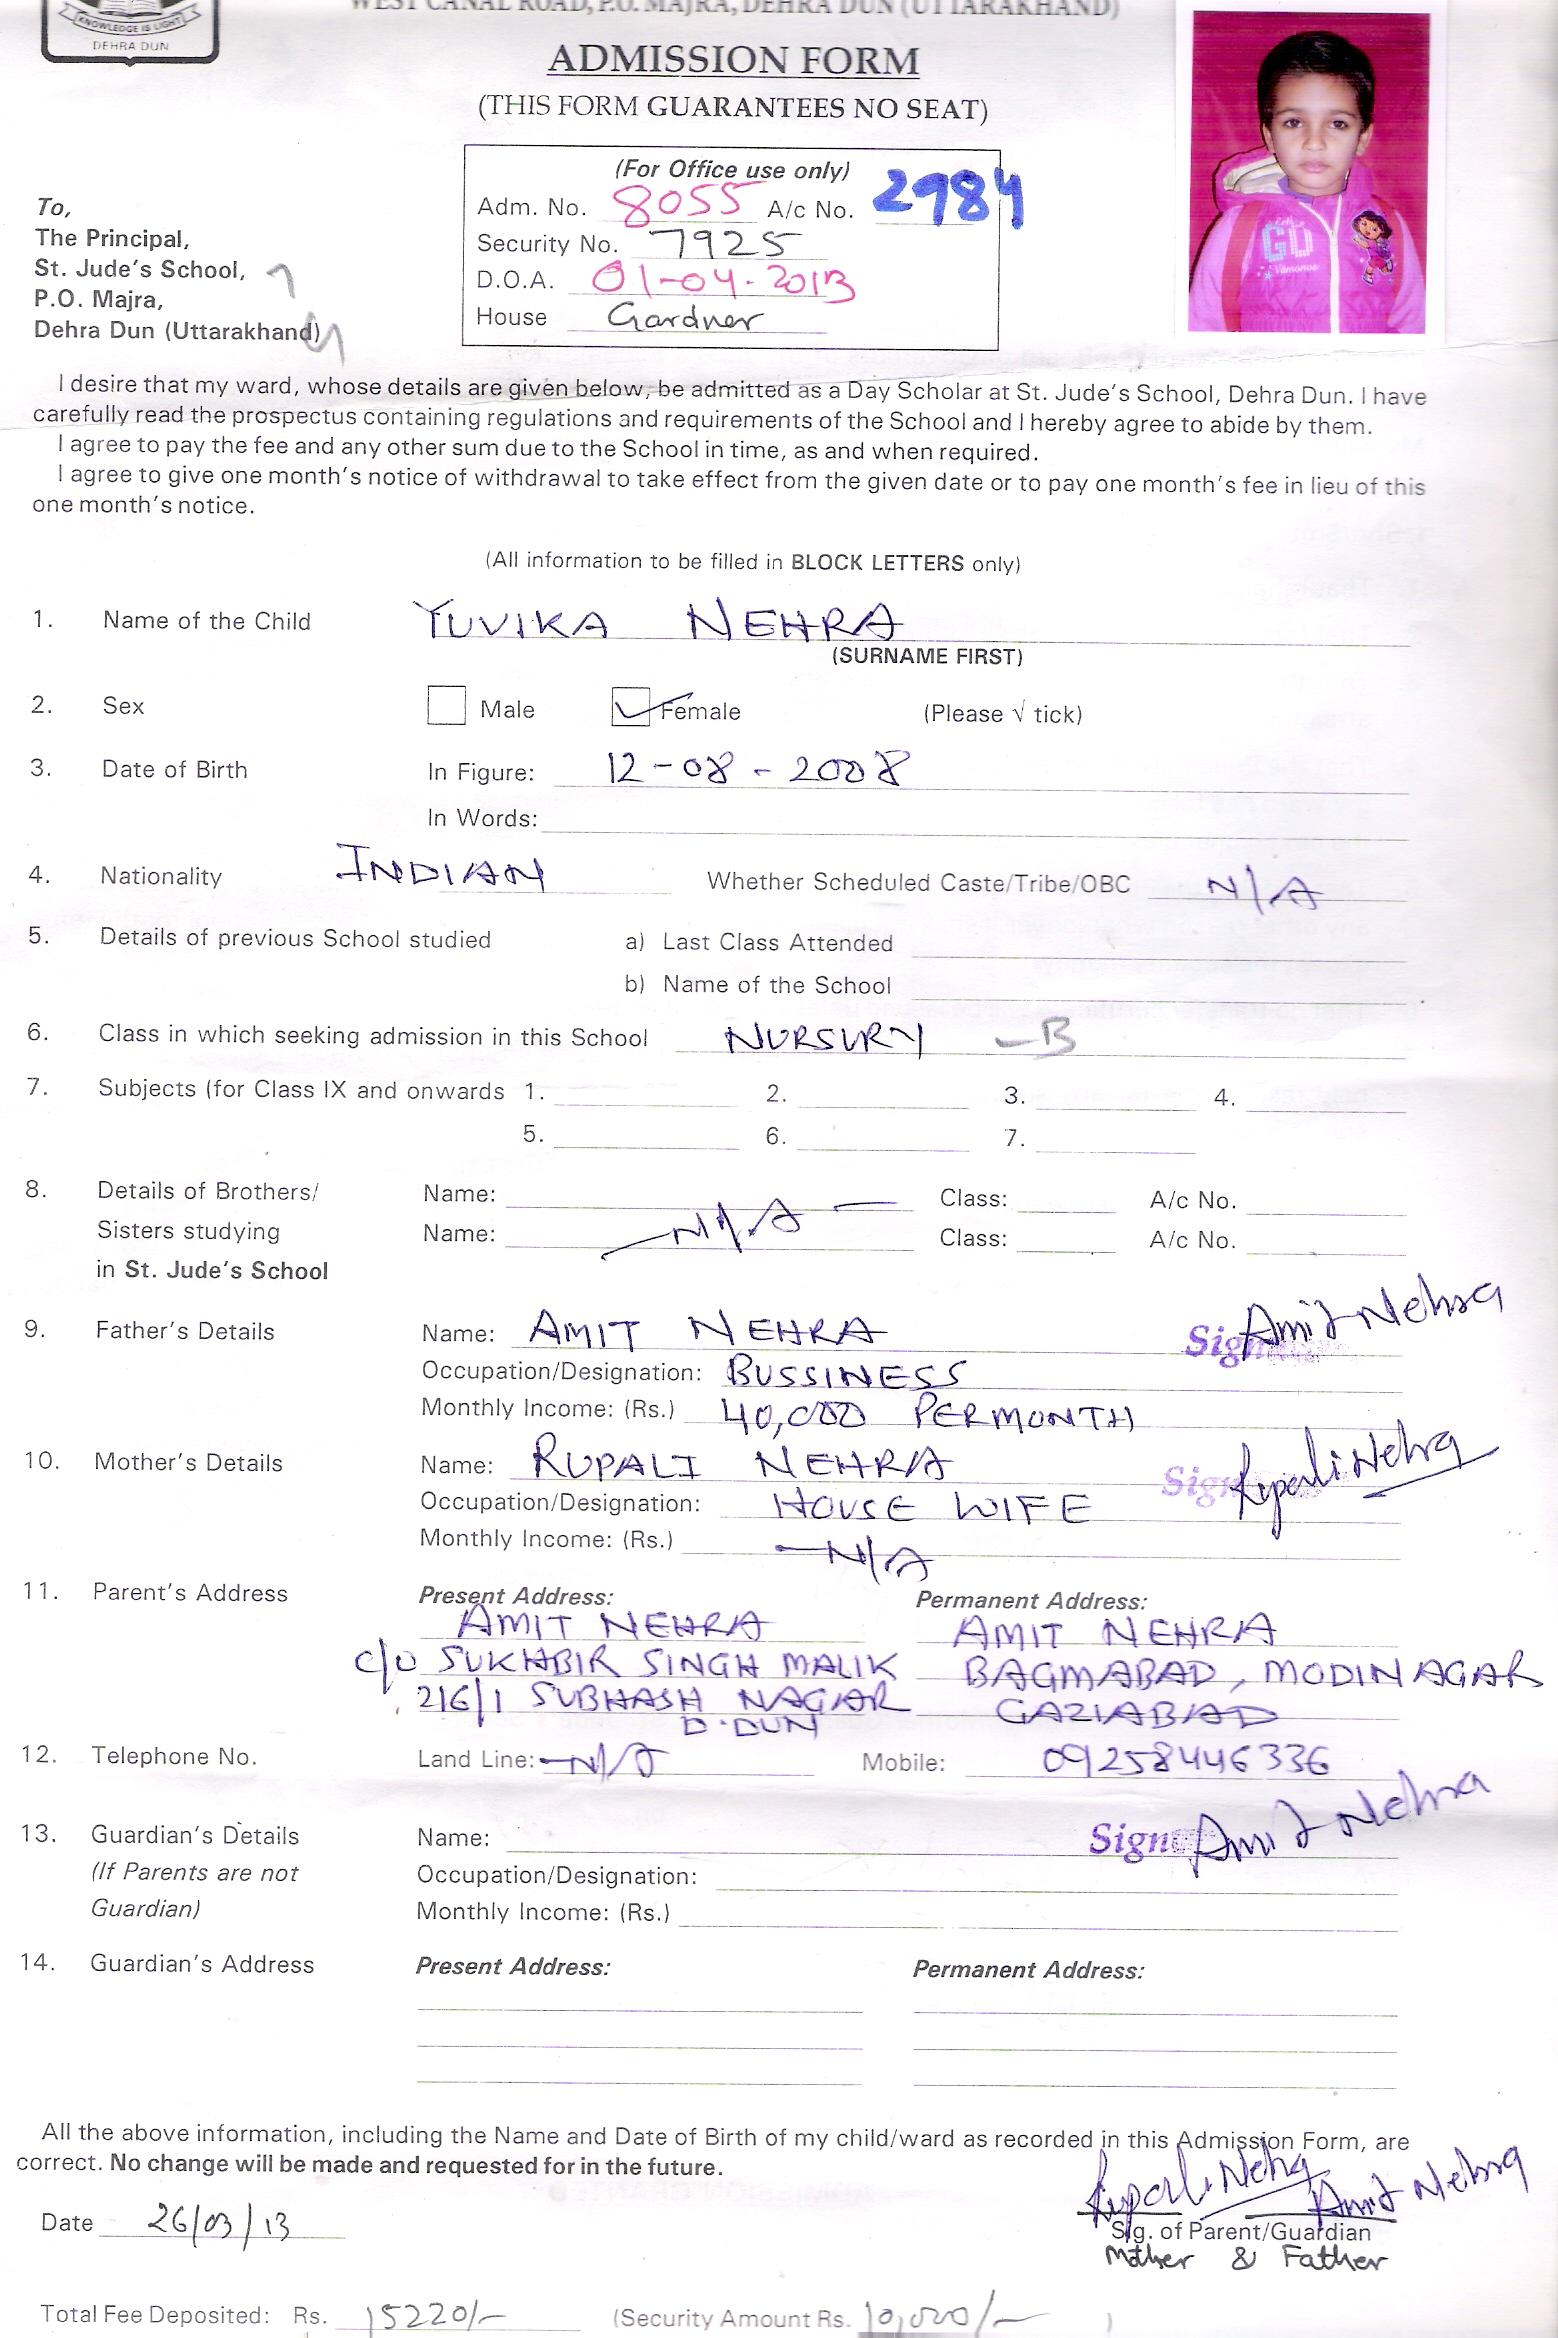 KNOWLEDGE IS LIGHT
DEHRA DUN
WEST CANAL ROAD, P.O. MAJRA, DEHRA DUN (UTTARAKHAND)
ADMISSION FORM
(THIS FORM GUARANTEES NO SEAT)
(For Office use only)
Adm. No. 8055 A/c No. 2984
Security No. 7925
D.O.A. 01-04-2013
House Gardner
To,
The Principal,
St. Jude's School,
P.O. Majra,
Dehra Dun (Uttarakhand)
I desire that my ward, whose details are given below, be admitted as a Day Scholar at St. Jude's School, Dehra Dun. I have
carefully read the prospectus containing regulations and requirements of the School and I hereby agree to abide by them.
I agree to pay the fee and any other sum due to the School in time, as and when required.
I agree to give one month's notice of withdrawal to take effect from the given date or to pay one month's fee in lieu of this
one month's notice.
(All information to be filled in BLOCK LETTERS only)
1. Name of the Child YUVIKA NEHRA
(SURNAME FIRST)
2. Sex Male Female (Please √ tick)
3. Date of Birth In Figure: 12-08-2008
In Words:
4. Nationality INDIAN Whether Scheduled Caste/Tribe/OBC N/A
5. Details of previous School studied a) Last Class Attended
b) Name of the School
6. Class in which seeking admission in this School NURSURY -B
7. Subjects (for Class IX and onwards 1. 2. 3. 4.
5. 6. 7.
8. Details of Brothers/ Name: Class: A/c No.
Sisters studying Name: N/A Class: A/c No.
in St. Jude's School
9. Father's Details Name: AMIT NEHRA Sign Amit Nehra
Occupation/Designation: BUSSINESS
Monthly Income: (Rs.) 40,000 PERMONTH
10. Mother's Details Name: RUPALI NEHRA Sign Rupali Nehra
Occupation/Designation: HOUSE WIFE
Monthly Income: (Rs.) N/A
11. Parent's Address Present Address: Permanent Address:
AMIT NEHRA AMIT NEHRA
C/O SUKHBIR SINGH MALIK BAGMABAD, MODINAGAR
216/1 SUBHASH NAGAR GAZIABAD
D.DUN
12. Telephone No. Land Line: N/A Mobile: 09258446336
13. Guardian's Details Name: Sign Amit Nehra
(If Parents are not Occupation/Designation:
Guardian) Monthly Income: (Rs.)
14. Guardian's Address Present Address: Permanent Address:
All the above information, including the Name and Date of Birth of my child/ward as recorded in this Admission Form, are
correct. No change will be made and requested for in the future.
Rupali Nehra Amit Nehra
Date 26/03/13 Sig. of Parent/Guardian
Mother & Father
Total Fee Deposited: Rs. 15220/- (Security Amount Rs. 10,000/- )